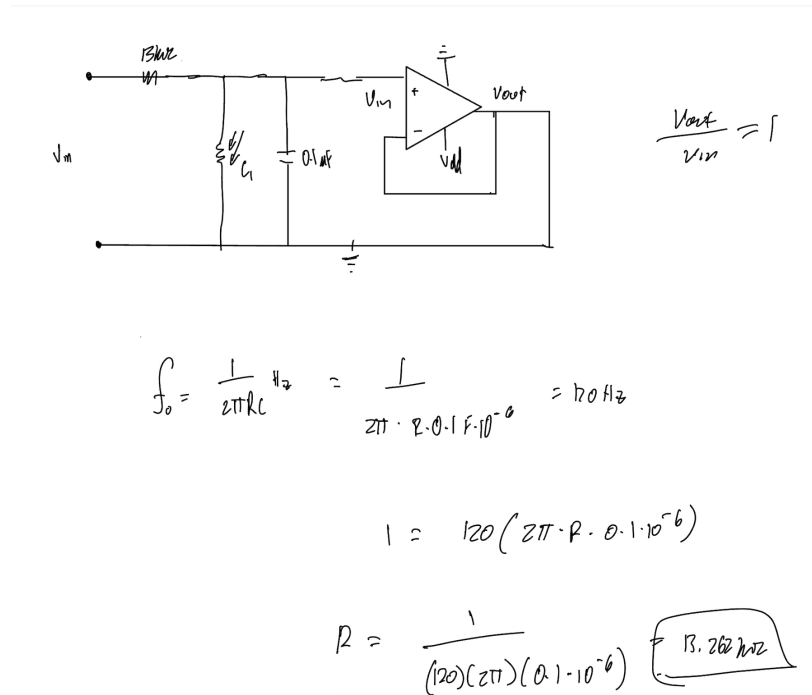 13kΩ
Vin
Vout
Vin
C1
0.1µF
Vdd
+
-
Vout / Vin = 1
f₀ = 1 / 2πRC Hz = 1 / 2π · R · 0.1 F · 10⁻⁶ = 120 Hz
1 = 120 (2π · R · 0.1 · 10⁻⁶)
R = 1 / (120)(2π)(0.1 · 10⁻⁶) = 13.262 kΩ